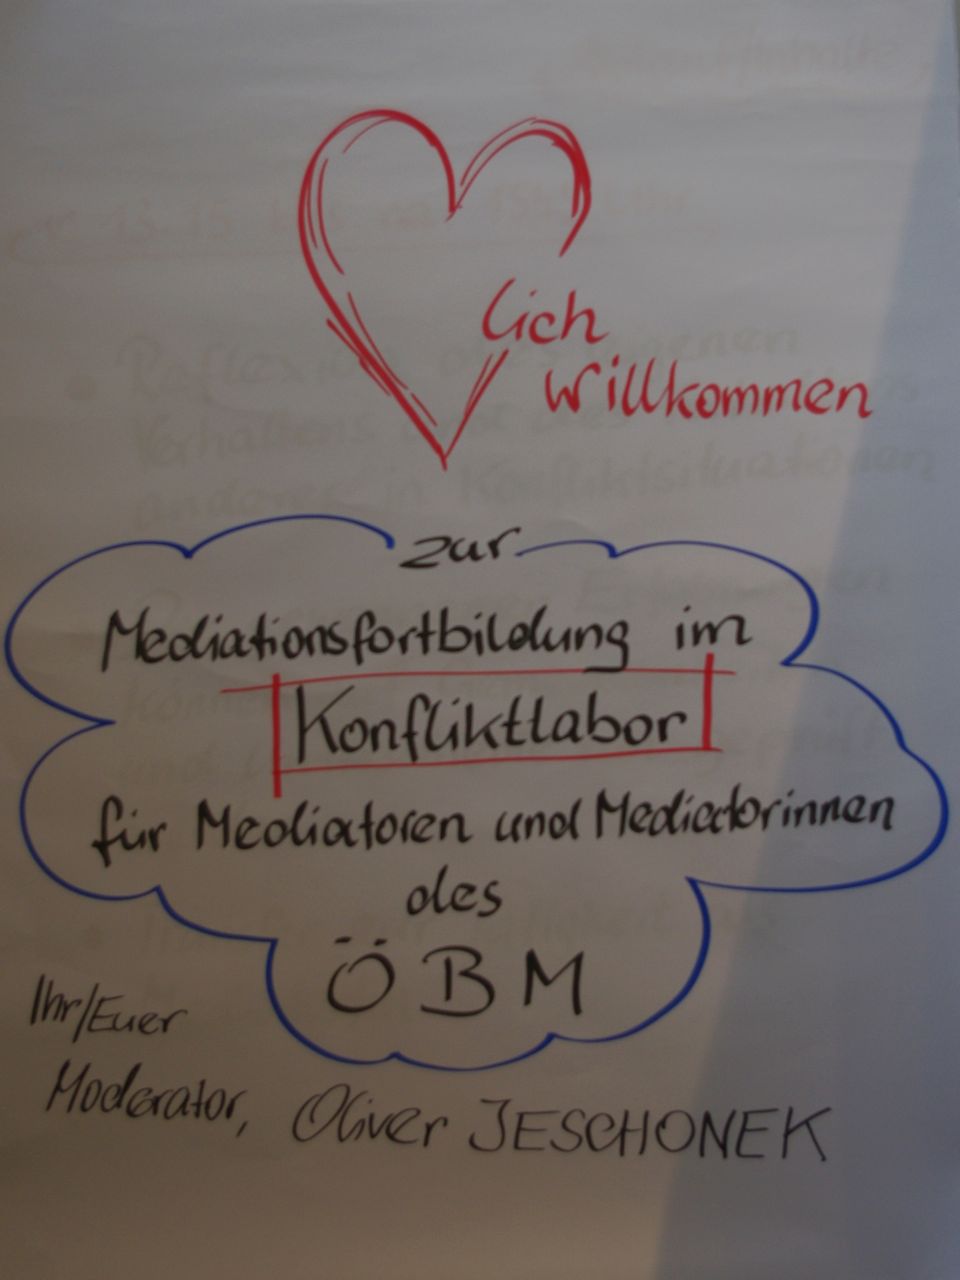 lich
Willkommen
zur
Mediationsfortbildung im
Konfliktlabor
für Mediatoren und Mediatorinnen
des
ÖBM
Ihr/Euer
Moderator, Oliver JESCHONEK